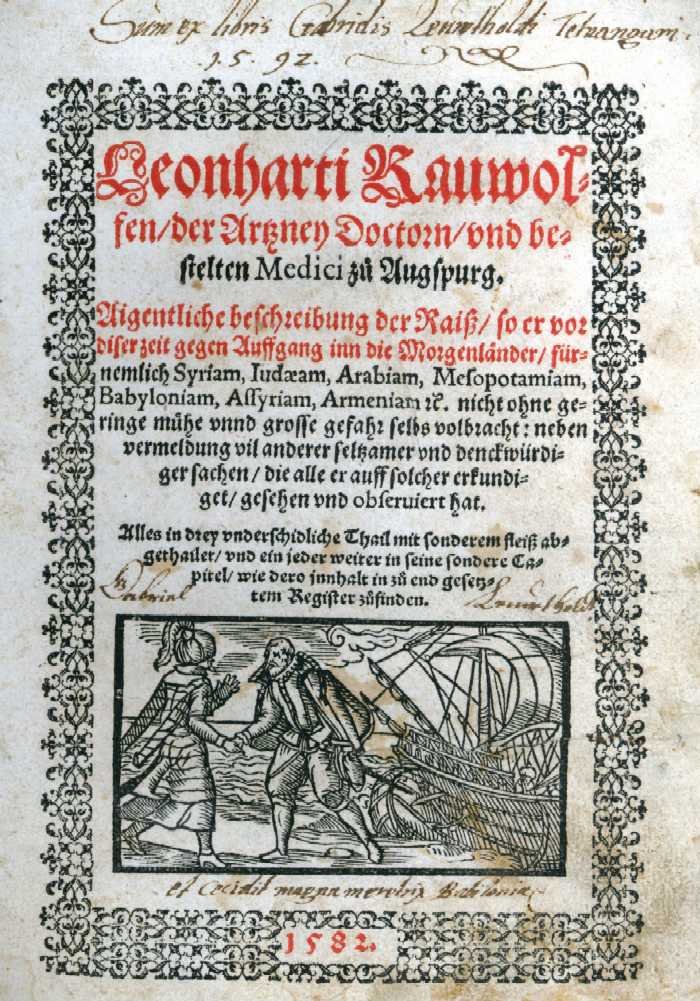 Sum ex libris Gabrielis
1592.
Leonharti Rauwol-
fen/der Artzney Doctorn/vnd be-
stelten Medici zů Augspurg.
Aigentliche beschreibung der Raiß/ so er vor
diser zeit gegen Auffgang inn die Morgenländer/ für-
nemlich Syriam, Iudæam, Arabiam, Mesopotamiam,
Babyloniam, Assyriam, Armeniam ꝛc. nicht ohne ge-
ringe mühe vnnd grosse gefahr selbs volbracht: neben
vermeldung vil anderer seltzamer vnd denckwürdi-
ger sachen/ die alle er auff solcher erkundi-
get/ gesehen vnd obseruiert hat.
Alles in drey vnderschidliche Thail mit sonderem fleiß ab-
gethailet/ vnd ein jeder weiter in seine sondere Ca-
pitel/ wie dero innhalt in zů end gesetz-
tem Register zůfinden.
Gabriel
et cecidit magna meretrix
1582.